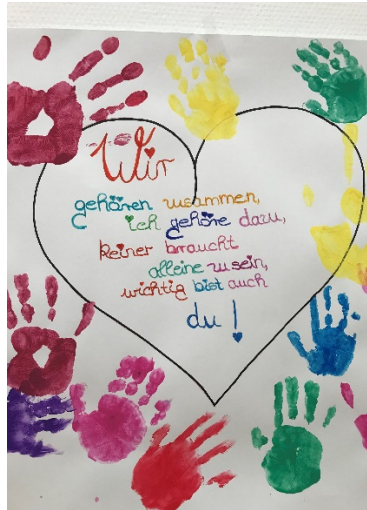 Wir
gehören zusammen,
ich gehöre dazu,
keiner braucht
alleine zu sein,
wichtig bist auch
du !